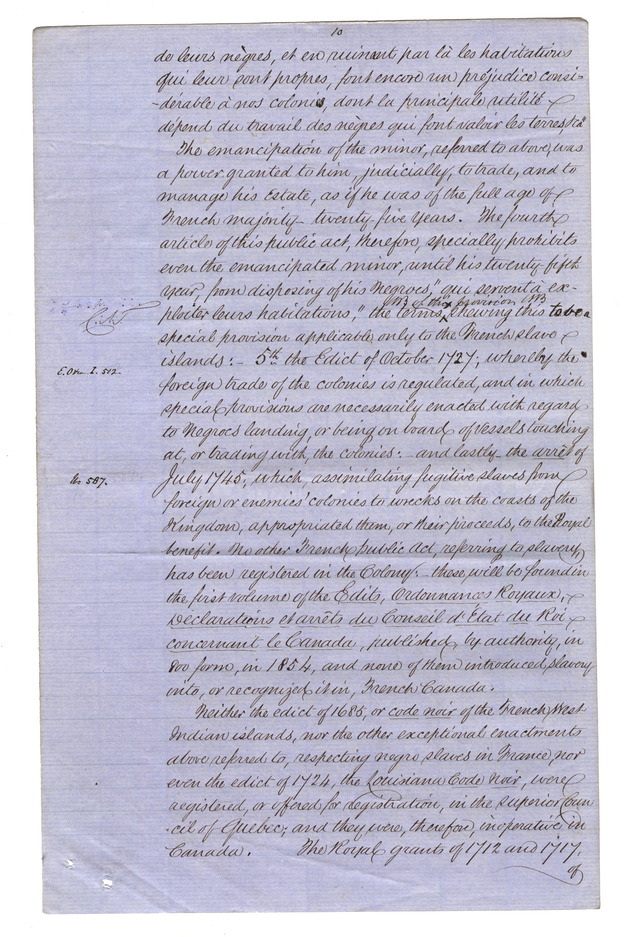 10
de leurs nègres, et en ruinant par là les habitations
qui leur sont propres, font encore un préjudice consi-
-dérable à nos colonies, dont la principale utilité
dépend du travail des nègres qui font valoir les terres, &ca
The emancipation of the minor, referred to above, was
a power granted to him, judicially, to trade, and to
manage his Estate, as if he was of the full age of
French majority – twenty five years. The fourth
article of this public act, therefore, specially prohibits
even the emancipated minor, until his twenty fifth
year, from disposing of his Negroes, "qui servent à ex-
ploiter leurs habitations," the terms
of this provision
shewing this to be a
special provision applicable only to the French slave
islands: – 5th the Edict of October 1727, whereby the
E. Or. I. 512.
foreign trade of the colonies is regulated, and in which
special provisions are necessarily enacted with regard
to Negroes landing, or being on board of vessels touching
at, or trading with, the colonies: – and lastly the arrêt of
Ib. 587.
July 1745, which, assimilating fugitive slaves from
foreign or enemies' colonies to wrecks on the coasts of the
Kingdom, appropriated them, or their proceeds, to the Royal
benefit. No other French public Act, referring to slavery,
has been registered in the Colony: – these, will be found in
the first volume of the Edits, Ordonnances Royaux,
Déclarations et arrêts du Conseil d'Etat du Roi
concernant le Canada, published, by authority, in
8vo form, in 1854, and none of them introduced slavery
into, or recognized it in, French Canada.
Neither the edict of 1685, or code noir of the French West
Indian islands, nor the other exceptional enactments
above referred to, respecting negro slaves in France, nor
even the edict of 1724, the Louisiana Code Noir, were
registered, or offered for registration, in the Superior Coun
cil of Quebec; and they were, therefore, inoperative in
Canada. The Royal grants of 1712 and 1717,
of